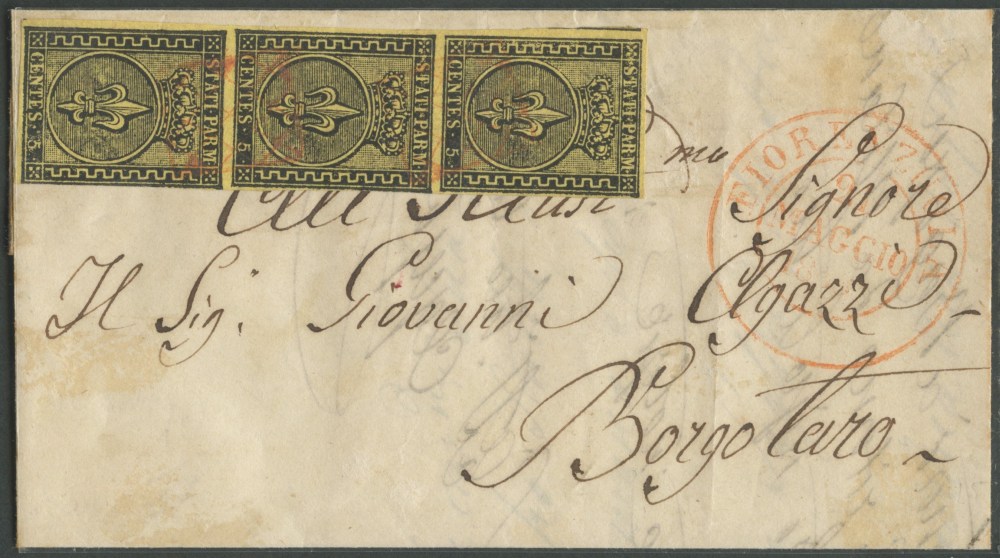 STATI PARM.
CENTES. 5.
STATI PARM.
CENTES. 5.
STATI PARM.
CENTES. 5.
FIORENZUOLA
MAGGIO
mo
Signore
Il Sig. Giovanni Agazzi
Borgotaro